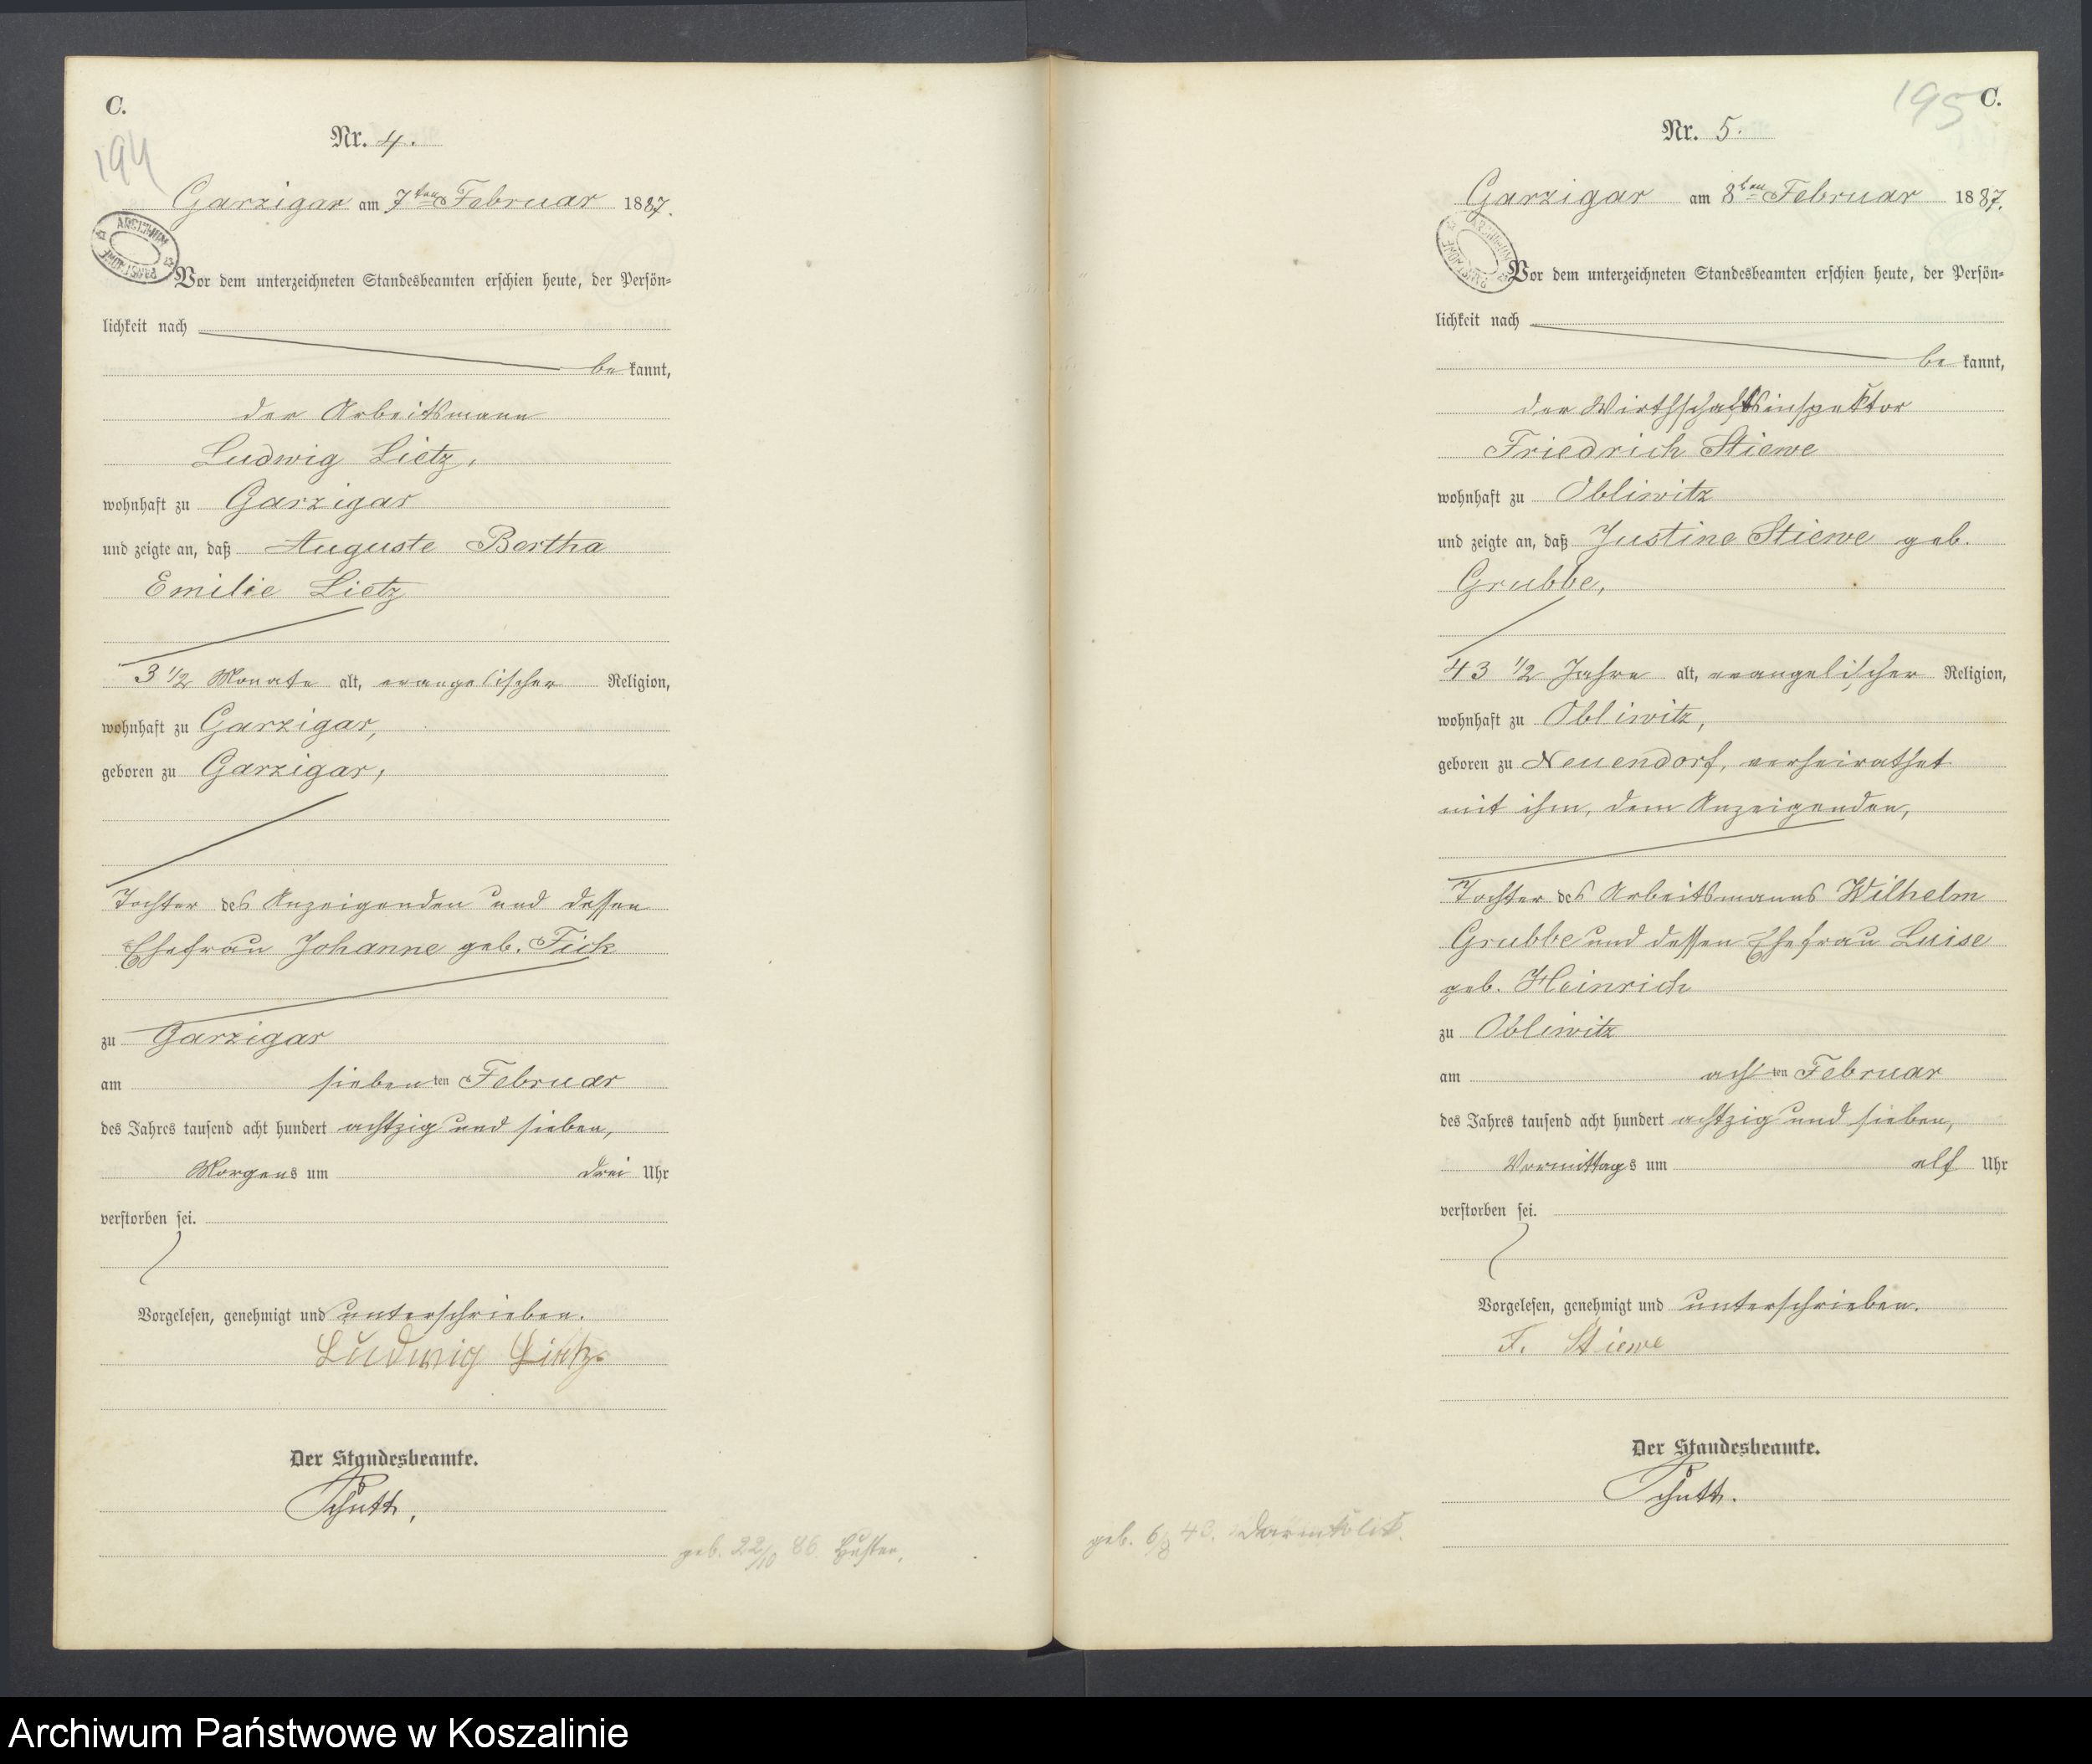 C.
194
Nr. 4.
Garzigar am 7ten Februar 1887.
ARCHIWUM PAŃSTWOWE
Vor dem unterzeichneten Standesbeamten erschien heute, der Persön-
lichkeit nach
bekannt,
der Arbeitsmann
Ludwig Lietz,
wohnhaft zu Garzigar
und zeigte an, daß Auguste Bertha
Emilie Lietz
3 1/2 Monate alt, evangelischer Religion,
wohnhaft zu Garzigar,
geboren zu Garzigar,
Tochter des Anzeigenden und dessen
Ehefrau Johanne geb. Fick
zu Garzigar
am siebenten Februar
des Jahres tausend acht hundert achtzig und sieben,
Morgens um drei Uhr
verstorben sei.
Vorgelesen, genehmigt und unterschrieben.
Ludwig Lietz.
Der Standesbeamte.
Schutt.
geb. 22/10 86. Husten.
195
C.
Nr. 5.
Garzigar am 8ten Februar 1887.
ARCHIWUM PAŃSTWOWE
Vor dem unterzeichneten Standesbeamten erschien heute, der Persön-
lichkeit nach
bekannt,
der Wirthschaftsinspektor
Friedrich Stiewe
wohnhaft zu Obliwitz
und zeigte an, daß Justine Stiewe geb.
Grubbe,
43 1/2 Jahre alt, evangelischer Religion,
wohnhaft zu Obliwitz,
geboren zu Neuendorf, verheirathet
mit ihm, dem Anzeigenden,
Tochter des Arbeitsmanns Wilhelm
Grubbe und dessen Ehefrau Luise
geb. Heinrich
zu Obliwitz
am achten Februar
des Jahres tausend acht hundert achtzig und sieben,
Vormittags um elf Uhr
verstorben sei.
Vorgelesen, genehmigt und unterschrieben.
F. Stiewe
Der Standesbeamte.
Schutt.
geb. 6/8 43. Darmkolik.
Archiwum Państwowe w Koszalinie